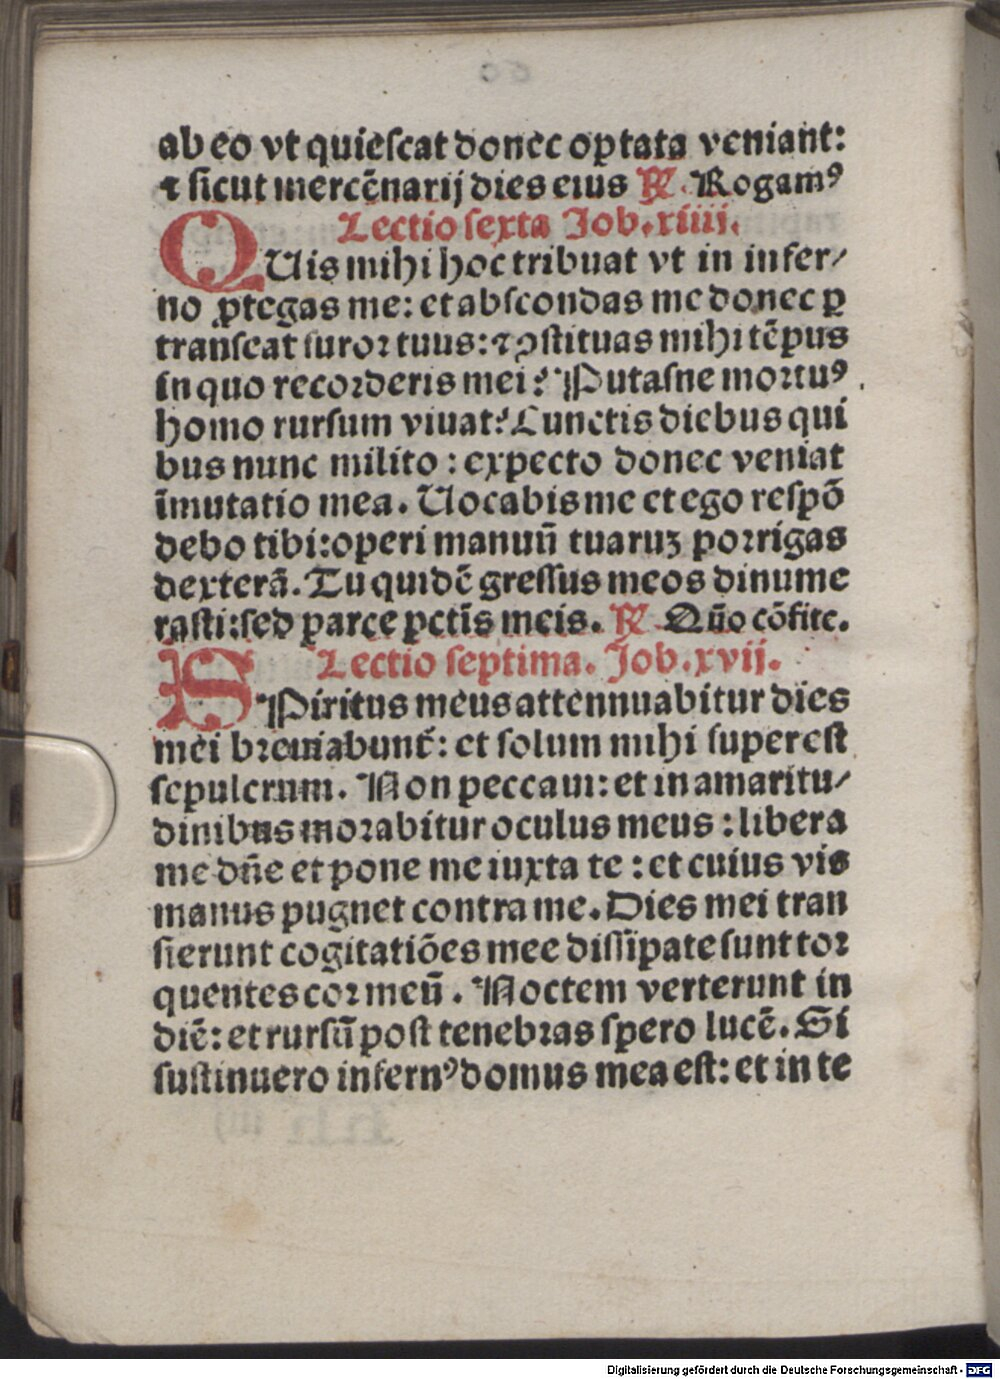 ab eo vt quiescat donec optata veniant:
⁊ sicut mercēnarij dies eius ℟. Rogamꝰ
Lectio sexta Job.xiiii.
QUis mihi hoc tribuat vt in infer/
no ꝓtegas me: et abscondas me donec ꝑ
transeat furor tuus: ⁊ ꝯstituas mihi tēpus
in quo recorderis mei? Putasne mortuꝰ
homo rursum viuat? Cunctis diebus qui
bus nunc milito : expecto donec veniat
īmutatio mea. Uocabis me et ego respō
debo tibi: operi manuū tuaruꝫ porrigas
dexterā. Tu quidē gressus meos dinume
rasti: sed parce pctīs meis. ℟. Qn̄o cōfite.
Lectio septima. Job.xvij.
SPiritus meus attennuabitur dies
mei breuiabunt̄: et solum mihi superest
sepulcrum. Non peccaui: et in amaritu/
dinibus morabitur oculus meus : libera
me dn̄e et pone me iuxta te : et cuius vis
manus pugnet contra me. Dies mei tran
sierunt cogitatiōes mee dissīpate sunt tor
quentes cor meū. Noctem verterunt in
diē: et rursū post tenebras spero lucē. Si
sustinuero infernꝰ domus mea est: et in te
Digitalisierung gefördert durch die Deutsche Forschungsgemeinschaft - DFG